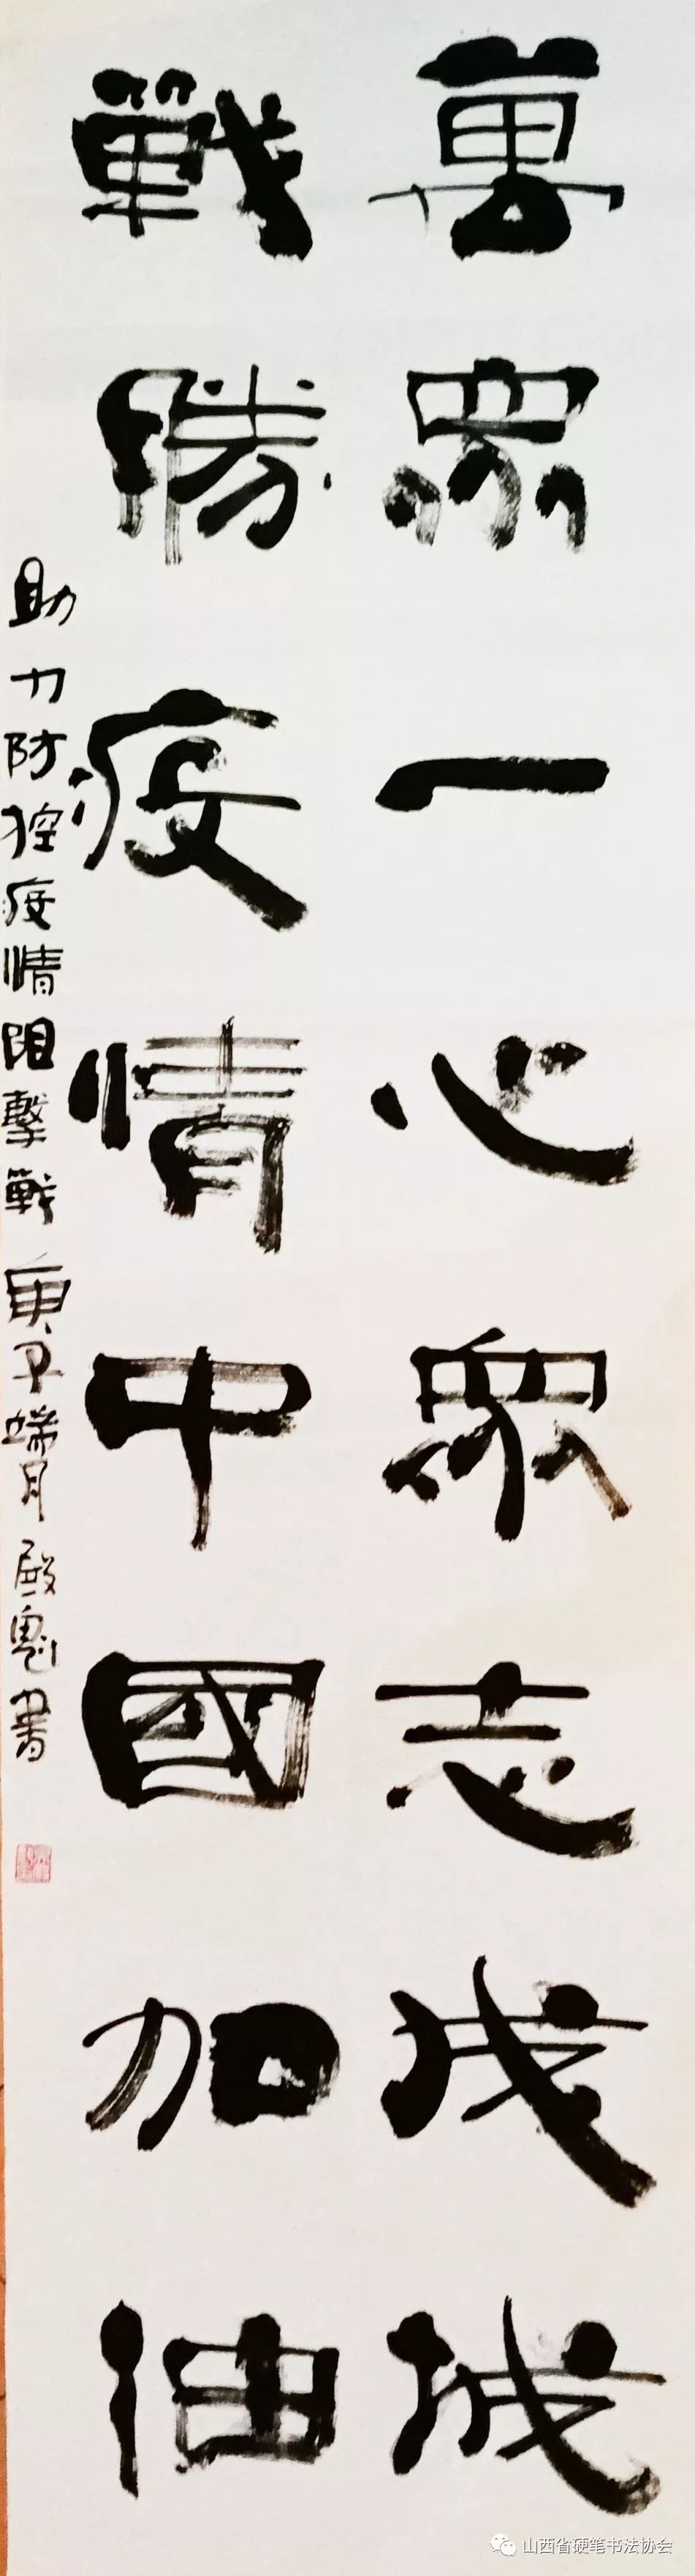 萬眾一心眾志成城
戰勝疫情中國加油
助力防控疫情阻擊戰庚子端月殿鬼書
山西省硬笔书法协会